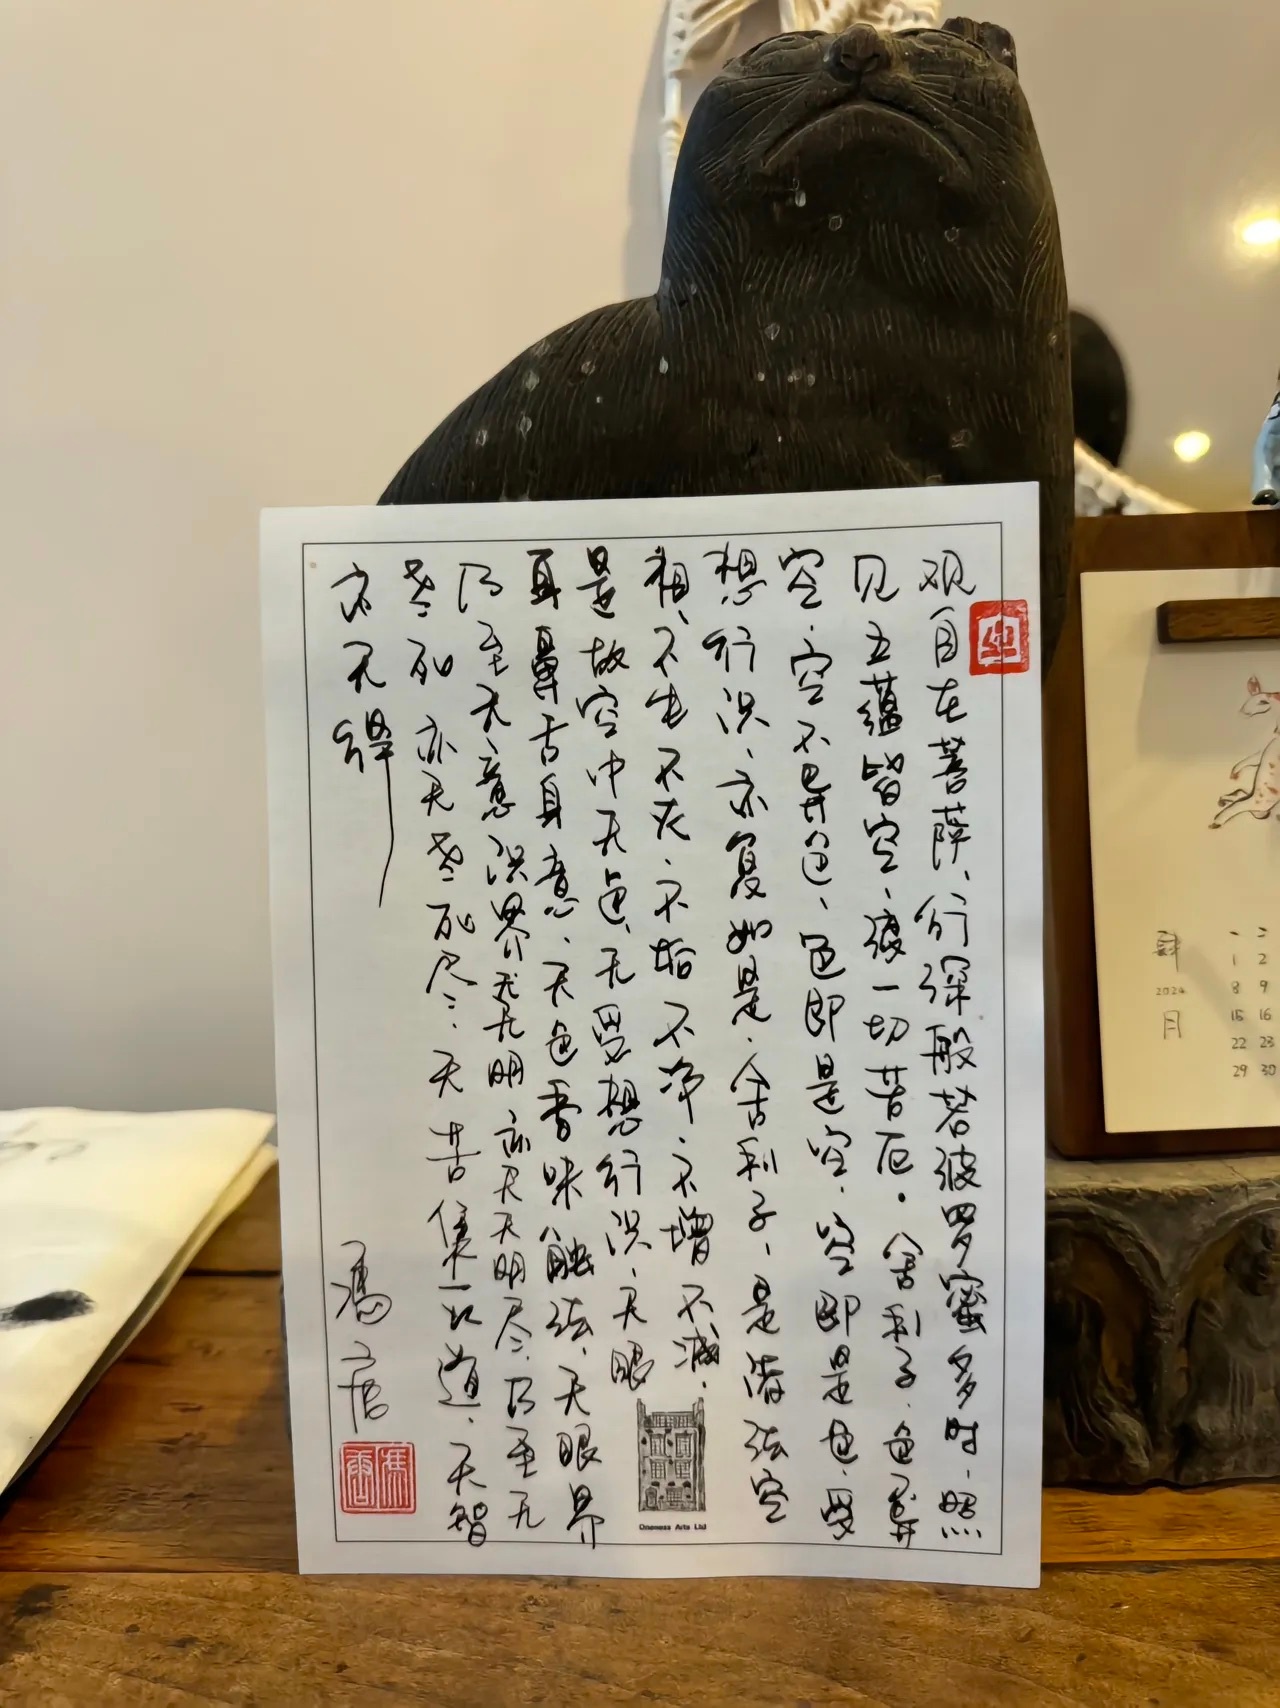 观自在菩萨、行深般若波罗蜜多时、照
见五蕴皆空、渡一切苦厄。舍利子、色不异
空、空不异色、色即是空、空即是色、受
想行识、亦复如是、舍利子、是诸法空
相、不生不灭、不垢不净、不增不减、
是故空中无色、无受想行识、无眼
耳鼻舌身意、无色香味触法、无眼界
乃至无意识界无无明亦无无明尽、乃至无
老死亦无老死尽、无苦集灭道、无智
亦无得
冯唐
冯唐
Oneness Arts Ltd
肆
2024
月
一 二
1 2
8 9
15 16
22 23
29 30